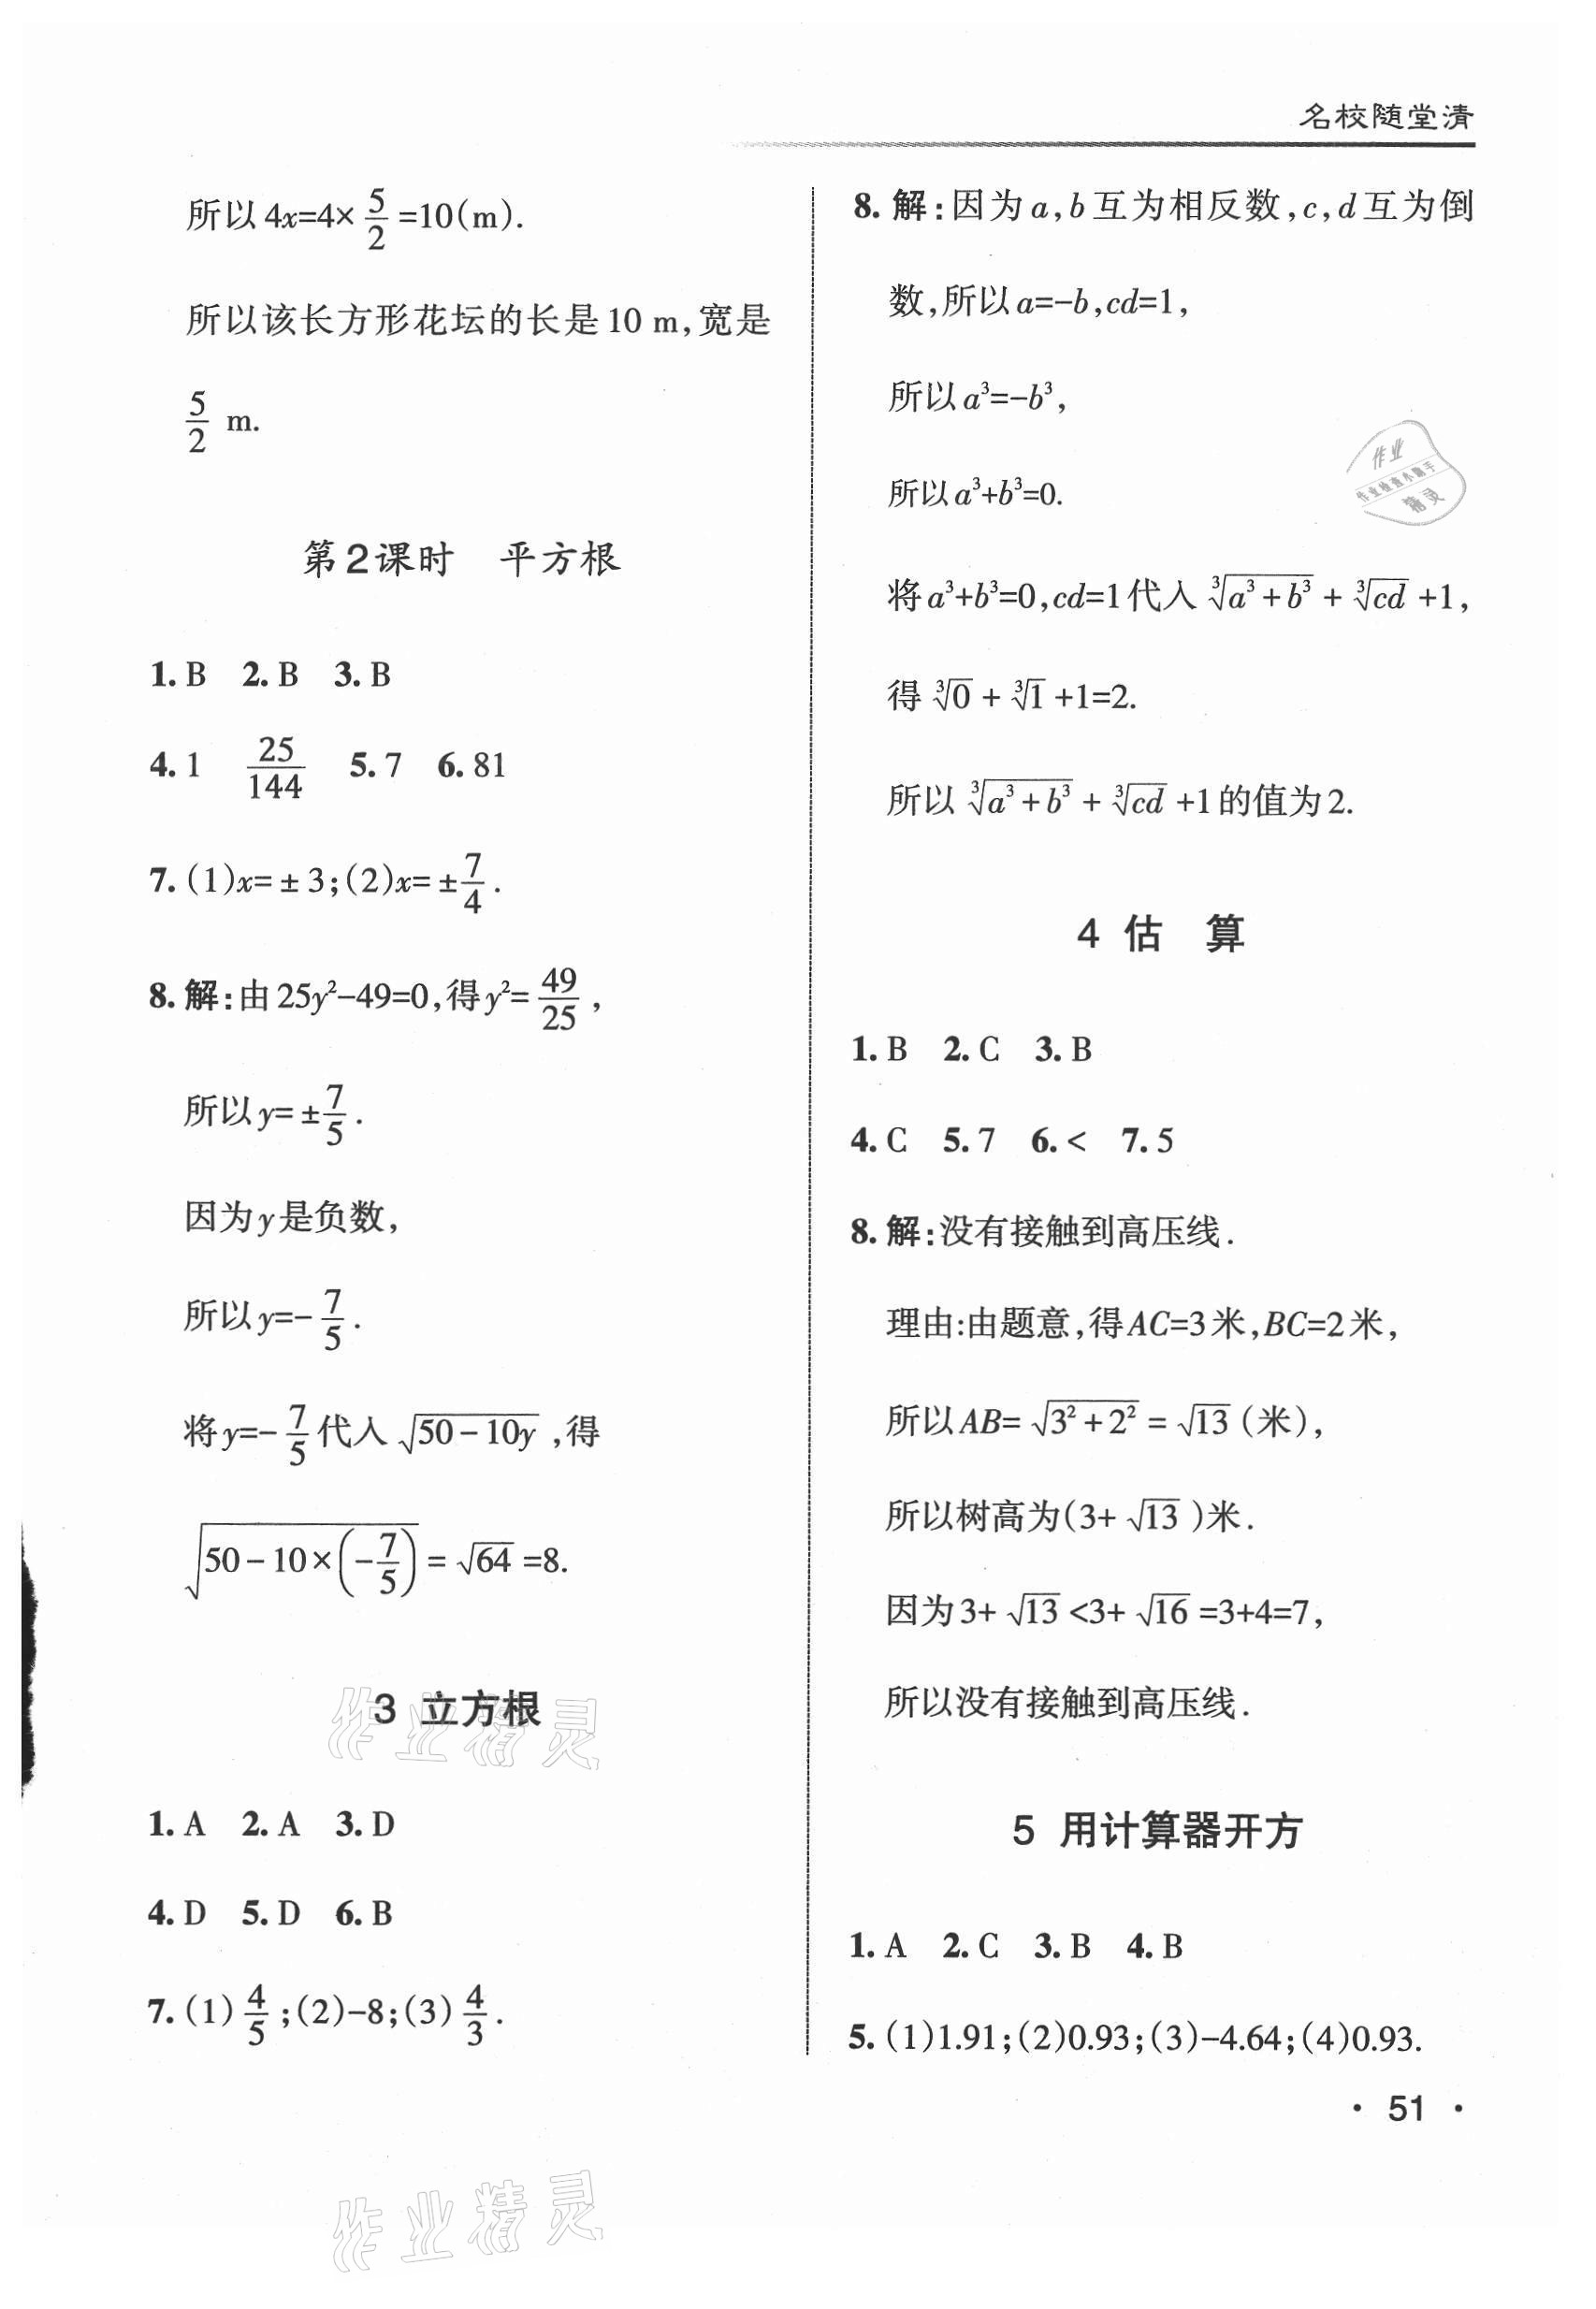 名校随堂清
所以4x=4×5/2=10(m).
所以该长方形花坛的长是10 m,宽是
5/2 m.
第2课时 平方根
1. B 2. B 3. B
4. 1 25/144 5. 7 6. 81
7. (1)x=±3;(2)x=±7/4.
8. 解:由25y²-49=0,得y²=49/25,
所以y=±7/5.
因为y是负数,
所以y=-7/5.
将y=-7/5代入√(50-10y),得
√(50-10×(-7/5))=√64=8.
3 立方根
1. A 2. A 3. D
4. D 5. D 6. B
7. (1)4/5;(2)-8;(3)4/3.
8. 解:因为a,b互为相反数,c,d互为倒
数,所以a=-b,cd=1,
所以a³=-b³,
所以a³+b³=0.
将a³+b³=0,cd=1代入∛(a³+b³)+∛(cd)+1,
得∛0+∛1+1=2.
所以∛(a³+b³)+∛(cd)+1的值为2.
4 估 算
1. B 2. C 3. B
4. C 5. 7 6. < 7. 5
8. 解:没有接触到高压线.
理由:由题意,得AC=3米,BC=2米,
所以AB=√(3²+2²)=√13(米),
所以树高为(3+√13)米.
因为3+√13<3+√16=3+4=7,
所以没有接触到高压线.
5 用计算器开方
1. A 2. C 3. B 4. B
5. (1)1.91;(2)0.93;(3)-4.64;(4)0.93.
· 51 ·
作业
作业检查小助手
精灵
作业精灵
作业精灵